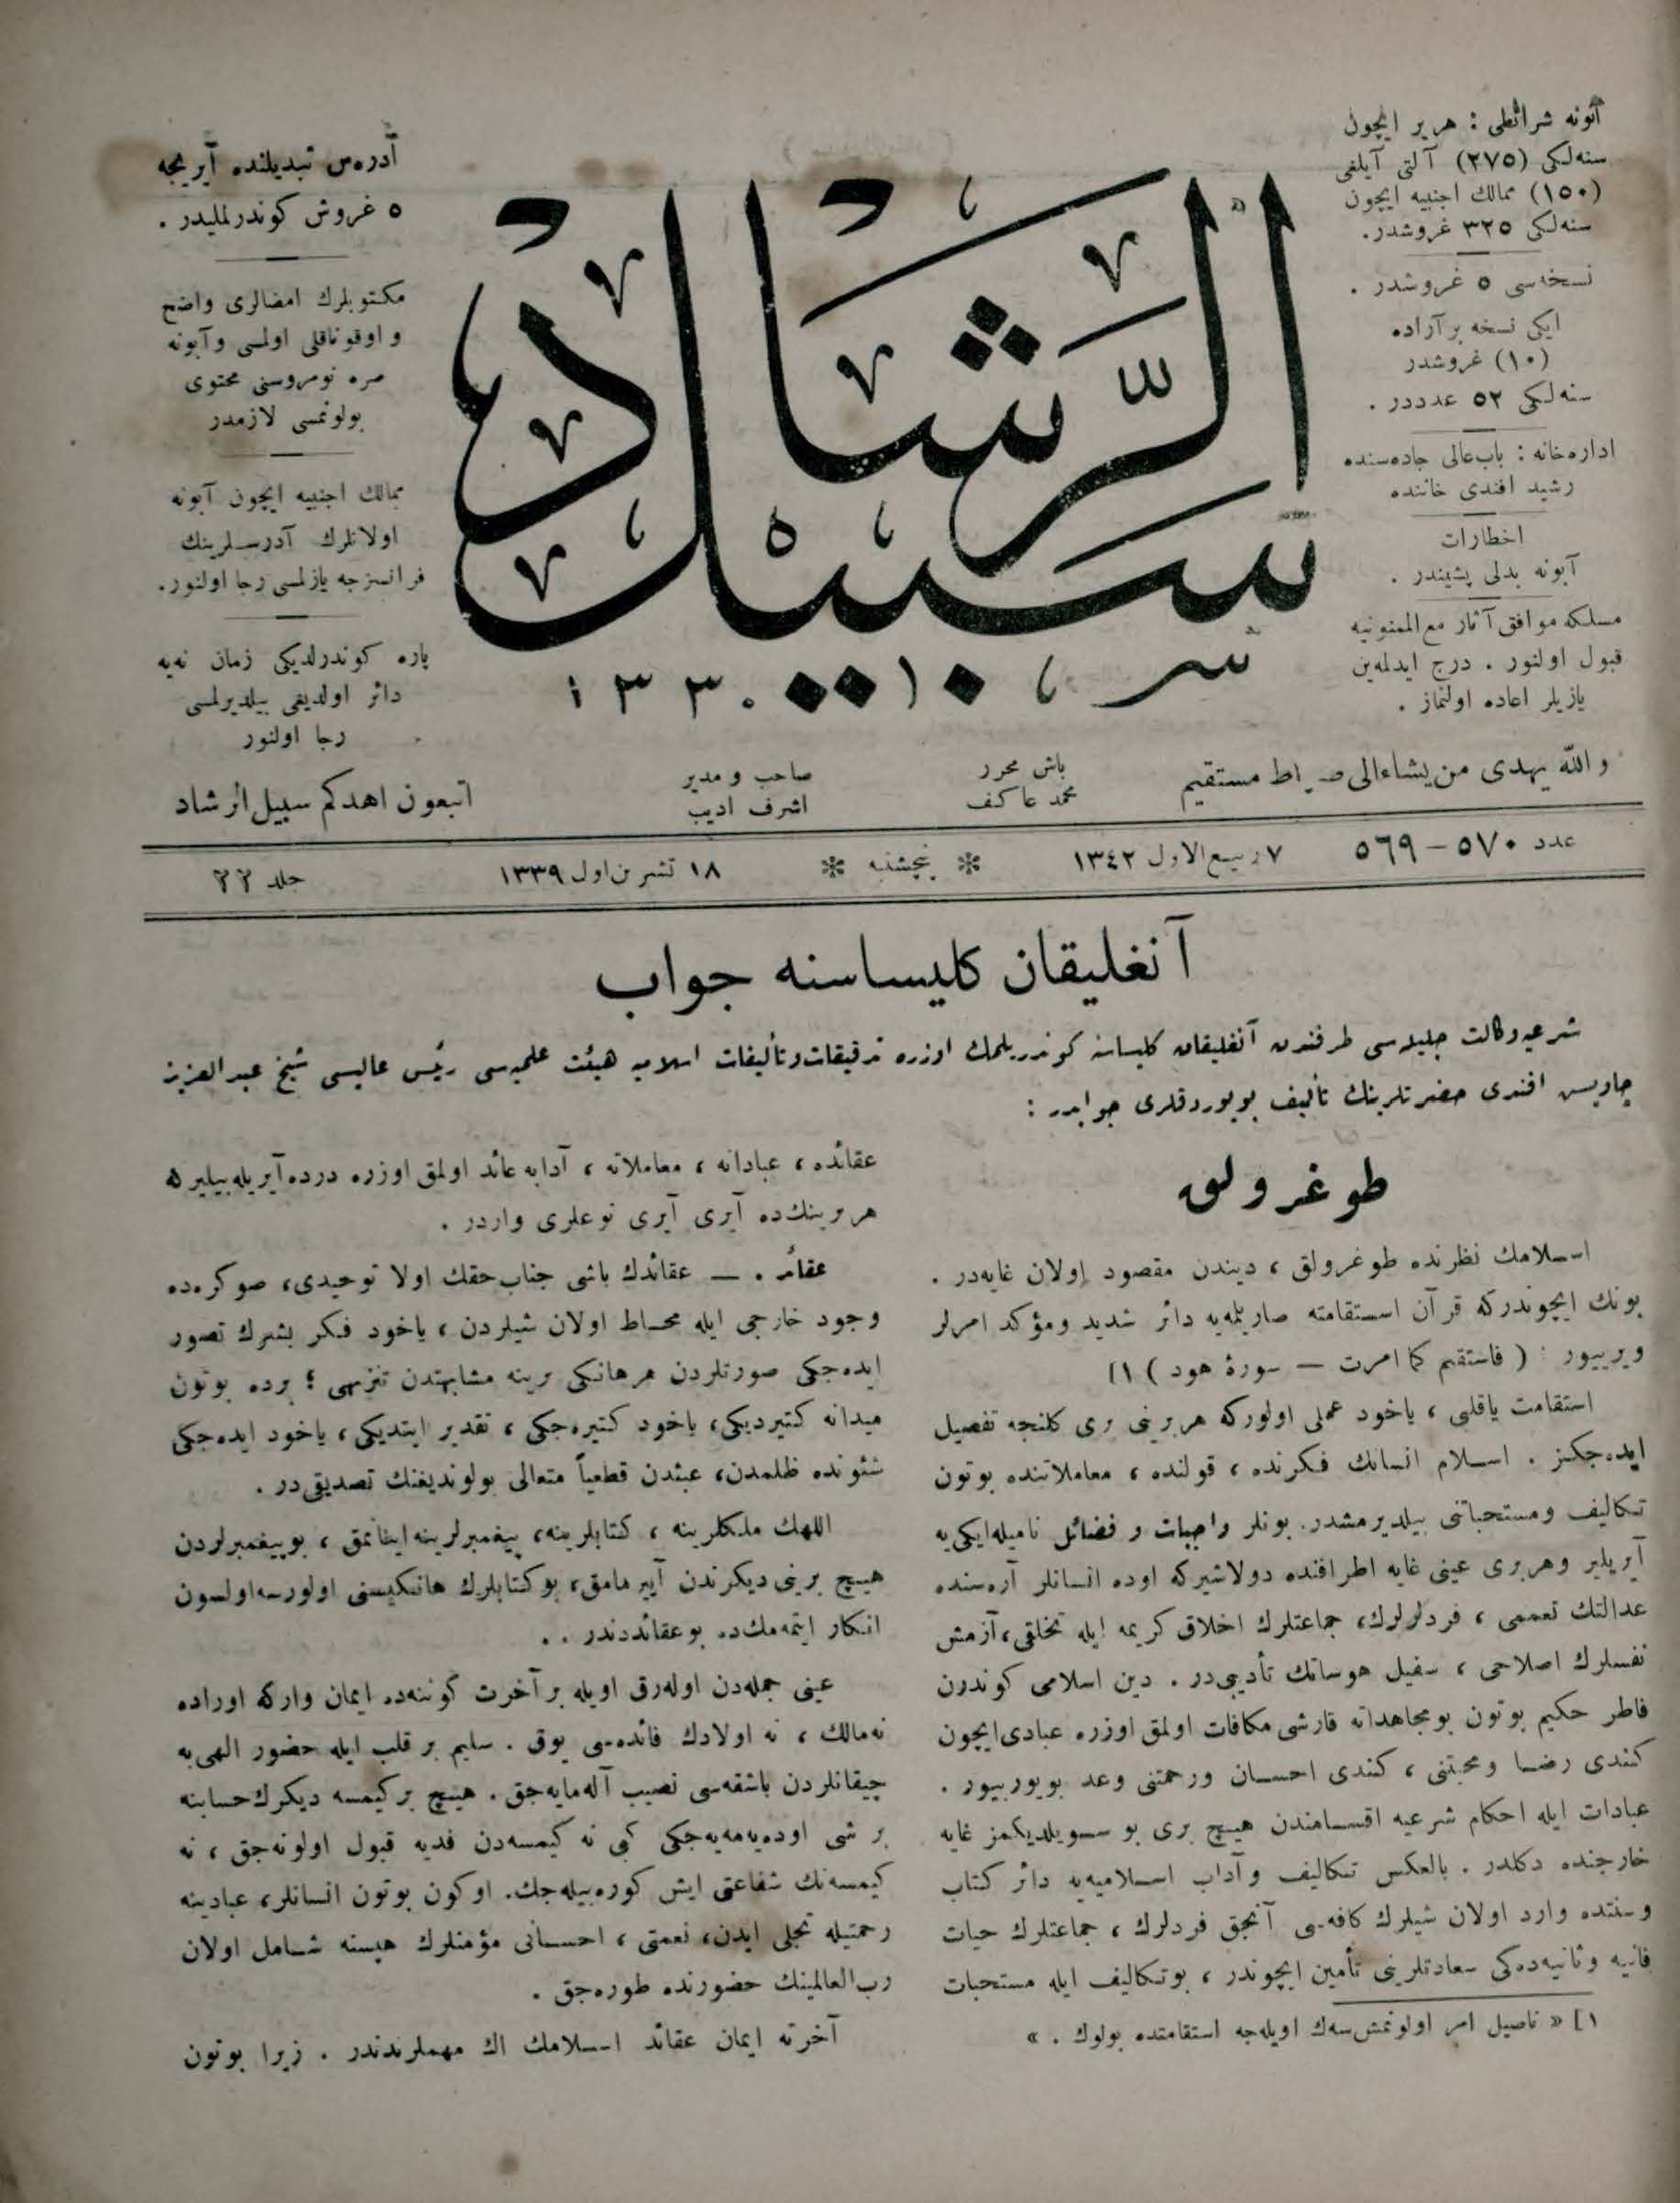 آبونه شرائطی : هر یر ایچون
سنه‌لکی (۲۷۵) آلتی آیلغی
(۱۵۰) ممالك اجنبیه ایچون
سنه‌لکی ۳۲۵ غروشدر.
نسخه‌سی ٥ غروشدر .
ایکی نسخه بر آراده
(۱۰) غروشدر
سنه‌لکی ٥۲ عدددر .
اداره‌خانه : باب‌عالی جاده‌سنده
رشید افندی خاننده
اخطارات
آبونه بدلی پشیندر .
مسلكه موافق آثار مع‌الممنونیه
قبول اولنور . درج ایدلمه‌ین
یازیلر اعاده اولنماز .
سبیل الرشاد
۱۳۳۰
آدره‌س تبدیلنده آیریجه
٥ غروش كوندرلملیدر .
مكتوبلرك امضالری واضح
و اوقوناقلی اولمسی و آبونه
صره نومروسنی محتوی
بولونمسی لازمدر
ممالك اجنبیه ایچون آبونه
اولانلرك آدرسلرینك
فرانسزجه یازلمسی رجا اولنور.
پاره كوندرلدیكی زمان نه‌یه
دائر اولدیغی بیلدیرلمسی
رجا اولنور
والله یهدی من یشاء الی صراط مستقیم
باش محرر
محمد عاكف
صاحب و مدیر
اشرف ادیب
اتبعون اهدكم سبیل الرشاد
عدد ٥۷۰ – ٥٦۹
۷ ربیع‌الاول ۱۳٤۲
✻ پنجشنبه ✻
۱۸ تشرین اول ۱۳۳۹
جلد ۲۲
آنغلیقان كلیساسنه جواب
شرعیه وكالت جلیله‌سی طرفندن آنغلیقان كلیساسنه كوندریلمك اوزره تدقیقات و تألیفات اسلامیه هیئت علمیه‌سی رئیس عالیسی شیخ عبدالعزیز
چاویش افندی حضرتلرینك تألیف بویوردقلری جوابدر :
طوغرولق
اسلامك نظرنده طوغرولق ، دیندن مقصود اولان غایه‌در .
بونك ایچوندركه قرآن استقامته صاریلمه‌یه دائر شدید و مؤكد امرلر
ویرییور : ( فاستقم كما امرت — سورهٔ هود ) [۱
استقامت یا قلبی ، یاخود عملی اولوركه هر برینی یری كلنجه تفصیل
ایده‌جكز . اسلام انسانك فكرنده ، قولنده ، معاملاتنده بوتون
تكالیف و مستحباتنی بیلدیرمشدر. بونلر واجبات و فضائل نامیله ایكی‌یه
آیریلیر وهربری عینی غایه اطرافنده دولاشیركه اوده انسانلر آره‌سنده
عدالتك تعممی ، فردلرك، جماعتلرك اخلاق كریمه ایله تخلقی، آزمش
نفسلرك اصلاحی ، سفیل هوساتك تأدیبی‌در . دین اسلامی كوندرن
فاطر حكیم بوتون بومجاهداته قارشی مكافات اولمق اوزره عبادی ایچون
كندی رضا و محبتنی ، كندی احسان ورحمتنی وعد بویورییور .
عبادات ایله احكام شرعیه اقسامندن هیچ بری بو سویلدیكمز غایه
خارجنده دكلدر . بالعكس تكالیف و آداب اسلامیه‌یه دائر كتاب
وسنتده وارد اولان شیلرك كافه‌سی آنجق فردلرك ، جماعتلرك حیات
فانیه وثانیه‌ده‌كی سعادتلرینی تأمین ایچوندر ، بوتكالیف ایله مستحبات
[۱ « ناصیل امر اولونمش‌سه‌ك اویله‌جه استقامتده بولوك . »
عقائده ، عباداته ، معاملاته ، آدابه عائد اولمق اوزره درده آیریله‌بیلیر
هر برینك‌ده آیری آیری نوعلری واردر .
عقائد . — عقائدك باشی جناب حقك اولا توحیدی، صوكره‌ده
وجود خارجی ایله محاط اولان شیلردن ، یاخود فكر بشرك تصور
ایده‌جكی صورتلردن هر هانكی برینه مشابهتدن تنزیهی ؛ برده بوتون
میدانه كتیردیكی، یاخود كتیره‌جكی ، تقدیر ایتدیكی ، یاخود ایده‌جكی
شئونده ظلمدن، عبثدن قطعیاً متعالی بولوندیغنك تصدیقی‌در .
اللهك ملكلرینه ، كتابلرینه، پیغمبرلرینه اینانمق ، بوپیغمبرلردن
هیچ برینی دیكرندن آییرمامق، بوكتابلرك هانكیسنی اولورسه‌اولسون
انكار ایتمه‌مك‌ده بوعقائددندر . .
عینی جمله‌دن اوله‌رق اویله بر آخرت كوننه‌ده ایمان واركه اوراده
نه مالك ، نه اولادك فائده‌سی یوق . سلیم بر قلب ایله حضور الهی‌یه
چیقانلردن باشقه‌سی نصیب آله‌مایه‌جق . هیچ بر كیمسه دیكرك حسابنه
بر شی اوده‌یه‌مه‌یه‌جكی كبی نه كیمسه‌دن فدیه قبول اولونه‌جق ، نه
كیمسه‌نك شفاعتی ایش كوره‌بیله‌جك. او كون بوتون انسانلر، عبادینه
رحمتیله تجلی ایدن، نعمتی ، احسانی مؤمنلرك هپسنه شامل اولان
رب‌العالمینك حضورنده طوره‌جق .
آخرته ایمان عقائد اسلامك اك مهملرندندر . زیرا بوتون